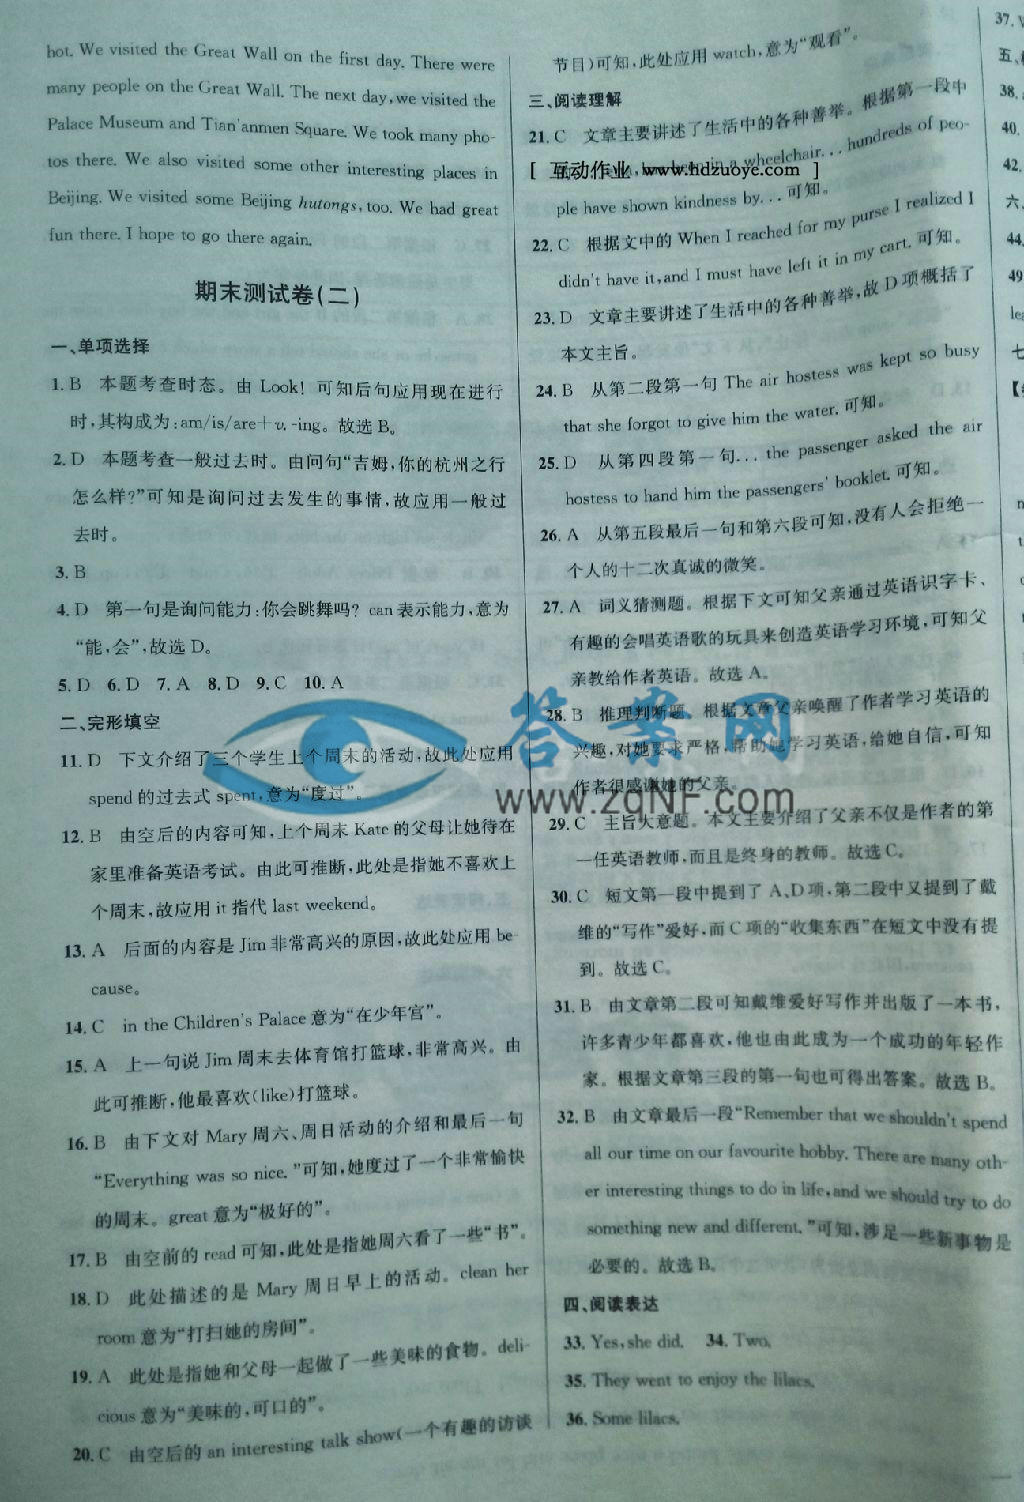 hot. We visited the Great Wall on the first day. There were
many people on the Great Wall. The next day, we visited the
Palace Museum and Tian'anmen Square. We took many pho-
tos there. We also visited some other interesting places in
Beijing. We visited some Beijing hutongs, too. We had great
fun there. I hope to go there again.
期末测试卷(二)
一、单项选择
1. B 本题考查时态。由 Look! 可知后句应用现在进行
时,其构成为:am/is/are+v. -ing。故选 B。
2. D 本题考查一般过去时。由问句“吉姆,你的杭州之行
怎么样?”可知是询问过去发生的事情,故应用一般过
去时。
3. B
4. D 第一句是询问能力:你会跳舞吗? can 表示能力,意为
“能,会”,故选 D。
5. D 6. D 7. A 8. D 9. C 10. A
二、完形填空
11. D 下文介绍了三个学生上个周末的活动,故此处应用
spend 的过去式 spent,意为“度过”。
12. B 由空后的内容可知,上个周末 Kate 的父母让她待在
家里准备英语考试。由此可推断,此处是指她不喜欢上
个周末,故应用 it 指代 last weekend。
13. A 后面的内容是 Jim 非常高兴的原因,故此处应用 be-
cause。
14. C in the Children's Palace 意为“在少年宫”。
15. A 上一句说 Jim 周末去体育馆打篮球,非常高兴。由
此可推断,他最喜欢(like)打篮球。
16. B 由下文对 Mary 周六、周日活动的介绍和最后一句
“Everything was so nice. ”可知,她度过了一个非常愉快
的周末。great 意为“极好的”。
17. B 由空前的 read 可知,此处是指她周六看了一些“书”。
18. D 此处描述的是 Mary 周日早上的活动。clean her
room 意为“打扫她的房间”。
19. A 此处是指她和父母一起做了一些美味的食物。deli-
cious 意为“美味的,可口的”。
20. C 由空后的 an interesting talk show(一个有趣的访谈
节目)可知,此处应用 watch,意为“观看”。
三、阅读理解
21. C 文章主要讲述了生活中的各种善举。根据第一段中
[ 互动作业 www.hdzuoye.com ]
in a wheelchair... hundreds of peo-
ple have shown kindness by... 可知。
22. C 根据文中的 When I reached for my purse I realized I
didn't have it, and I must have left it in my cart. 可知。
23. D 文章主要讲述了生活中的各种善举,故 D 项概括了
本文主旨。
24. B 从第二段第一句 The air hostess was kept so busy
that she forgot to give him the water. 可知。
25. D 从第四段第一句... the passenger asked the air
hostess to hand him the passengers' booklet. 可知。
26. A 从第五段最后一句和第六段可知,没有人会拒绝一
个人的十二次真诚的微笑。
27. A 词义猜测题。根据下文可知父亲通过英语识字卡、
有趣的会唱英语歌的玩具来创造英语学习环境,可知父
亲教给作者英语。故选 A。
28. B 推理判断题。根据文章父亲唤醒了作者学习英语的
兴趣,对她要求严格,帮助她学习英语,给她自信,可知
作者很感谢她的父亲。
答案网
www.zqNF.com
29. C 主旨大意题。本文主要介绍了父亲不仅是作者的第
一任英语教师,而且是终身的教师。故选 C。
30. C 短文第一段中提到了 A、D 项,第二段中又提到了戴
维的“写作”爱好,而 C 项的“收集东西”在短文中没有提
到。故选 C。
31. B 由文章第二段可知戴维爱好写作并出版了一本书,
许多青少年都喜欢,他也由此成为一个成功的年轻作
家。根据文章第三段的第一句也可得出答案。故选 B。
32. B 由文章最后一段“Remember that we shouldn't spend
all our time on our favourite hobby. There are many oth-
er interesting things to do in life, and we should try to do
something new and different. ”可知,涉足一些新事物是
必要的。故选 B。
四、阅读表达
33. Yes, she did. 34. Two.
35. They went to enjoy the lilacs.
36. Some lilacs.
37.
五、
38.
40.
42.
六、
44.
49.
七